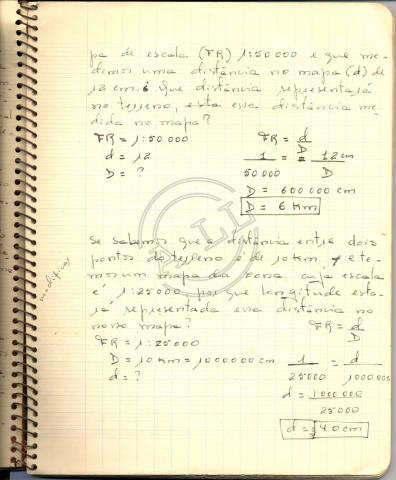 pa de escala (FR) 1:50 000 e que me-
dimos uma distância no mapa (d) de
12 cm. é Que distância representará
no terreno, esta essa distância me
dida no mapa?
FR = 1:50 000
d = 12
D = ?
FR = d/D
1/50 000 = 12 cm/D
D = 600 000 cm
D = 6 Km
Se sabemos que a distância entre dois
pontos do terreno é de 10 km, e te-
mos um mapa da zona cuja escala
é 1:25000 por que longitude esta-
rá representada essa distância no
nosso mapa?
FR = d/D
FR = 1:25000
D = 10 km = 1000000 cm
d = ?
1/25000 = d/1000 000
d = 1000 000/25000
d = 40 cm
modificar
ALI